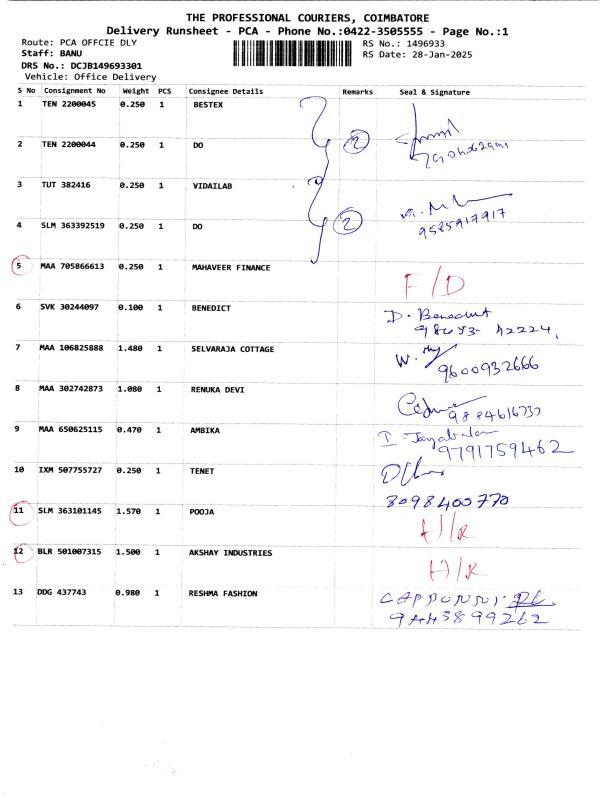 THE PROFESSIONAL COURIERS, COIMBATORE
Delivery Runsheet - PCA - Phone No.:0422-3505555 - Page No.:1
Route: PCA OFFCIE DLY RS No.: 1496933
Staff: BANU RS Date: 28-Jan-2025
DRS No.: DCJB149693301
Vehicle: Office Delivery
S No Consignment No Weight PCS Consignee Details Remarks Seal & Signature
1 TEN 2200045 0.250 1 BESTEX
2 TEN 2200044 0.250 1 DO 2
3 TUT 382416 0.250 1 VIDAILAB
9585917917
4 SLM 363392519 0.250 1 DO 2
5 MAA 705866613 0.250 1 MAHAVEER FINANCE F/D
6 SVK 30244097 0.100 1 BENEDICT D. Benedict
7 MAA 106825888 1.480 1 SELVARAJA COTTAGE
9600932666
8 MAA 302742873 1.080 1 RENUKA DEVI
9884616737
9 MAA 650625115 0.470 1 AMBIKA
9791759462
10 IXM 507755727 0.250 1 TENET
8098400770
11 SLM 363101145 1.570 1 POOJA
12 BLR 501007315 1.500 1 AKSHAY INDUSTRIES
13 DDG 437743 0.980 1 RESHMA FASHION
9443899262